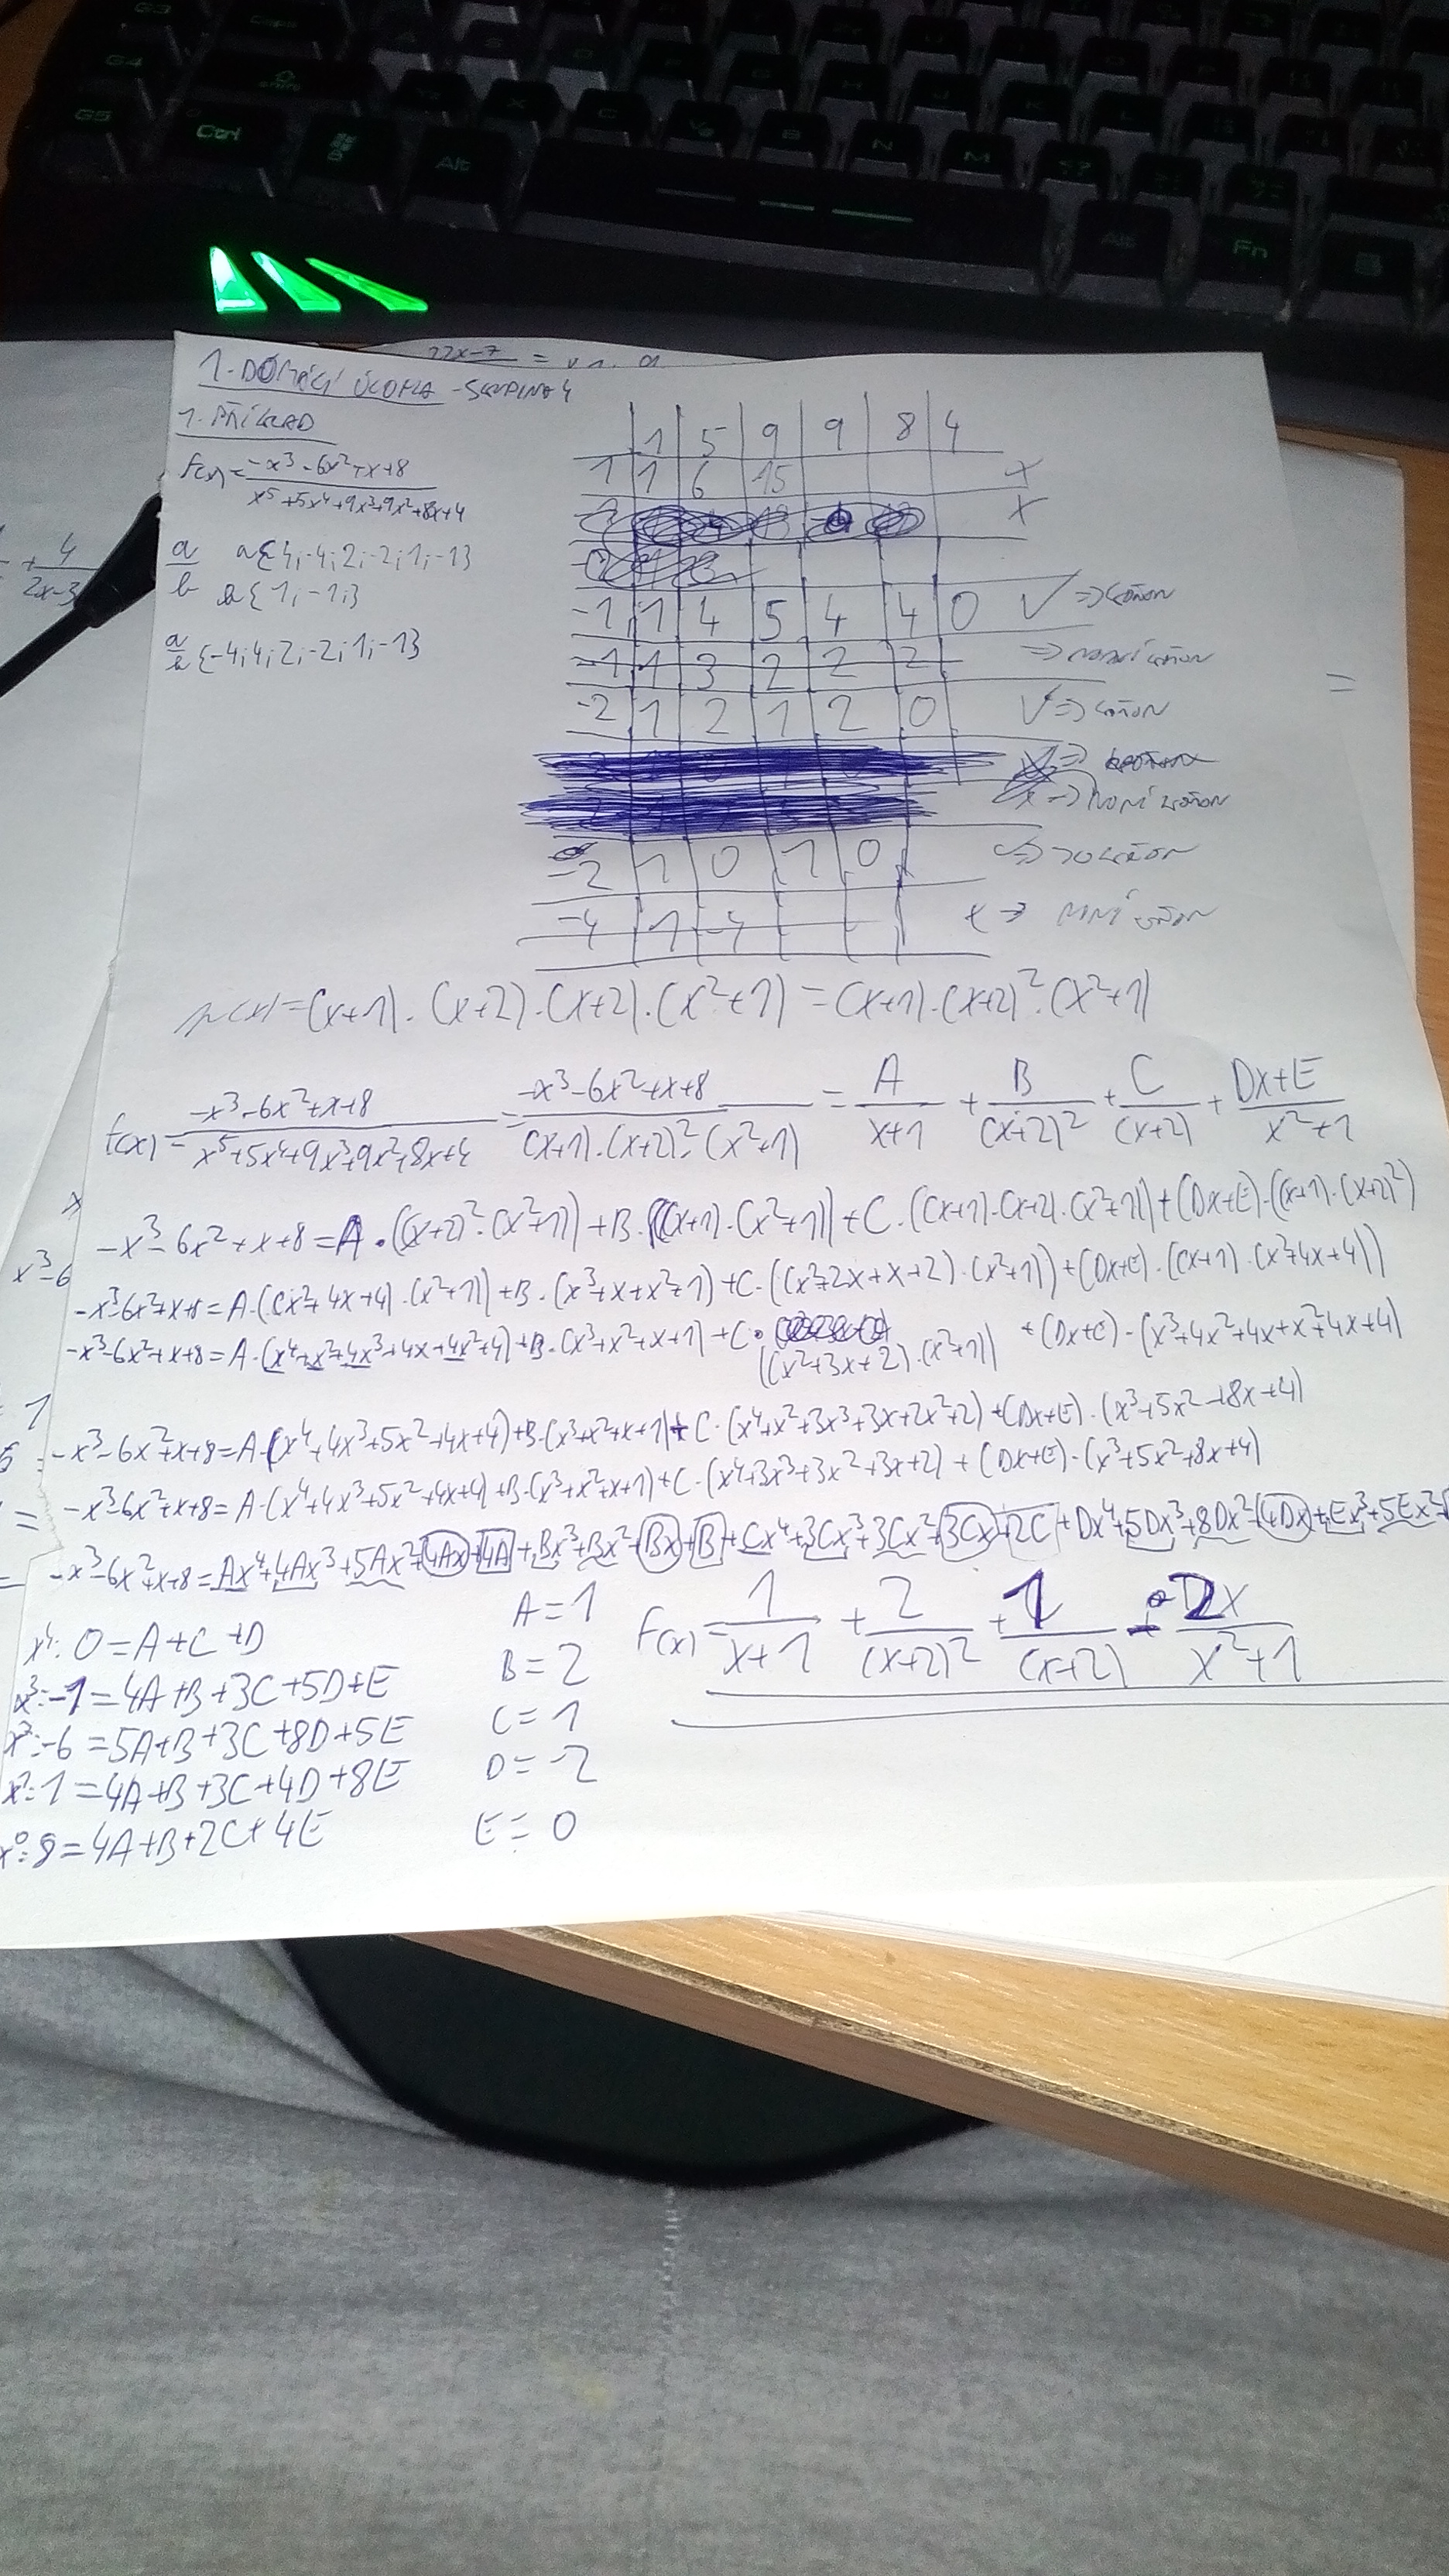 G3 Caps A S D F G H J K L
G4 Shift Y X C V B N M
G5 Ctrl Alt Alt Fn
22x-7 =
1. DOMÁCÍ ÚLOHA - SKUPINA 4
1. PŘÍKLAD
f(x) = -x³-6x²+x+8 / x⁵+5x⁴+9x³+9x²+8x+4
a/b a{4;-4;2;-2;1;-1}
b{1;-1;}
a/b {-4;4;2;-2;1;-1}
+ 4/2x-3
1 5 9 9 8 4
1 1 6 15 x
x
-1 1 4 5 4 4 0 ✓ => kořen
-1 1 3 2 2 2 => není kořen
-2 1 2 1 2 0 ✓ => kořen
x => není kořen
-2 1 0 1 0 => kořen
-4 1 -4 x => není kořen
=
p(x) = (x+1).(x+2).(x+2).(x²+1) = (x+1).(x+2)².(x²+1)
f(x) = -x³-6x²+x+8 / x⁵+5x⁴+9x³+9x²+8x+4 = -x³-6x²+x+8 / (x+1).(x+2)².(x²+1) = A/x+1 + B/(x+2)² + C/(x+2) + Dx+E/x²+1
-x³-6x²+x+8 = A.((x+2)².(x²+1)) + B.((x+1).(x²+1)) + C.((x+1).(x+2).(x²+1)) + (Dx+E).((x+1).(x+2)²)
x³-6
-x³-6x²+x+8 = A.((x²+4x+4).(x²+1)) + B.(x³+x+x²+1) + C.((x²+2x+x+2).(x²+1)) + (Dx+E).((x+1).(x²+4x+4))
-x³-6x²+x+8 = A.(x⁴+x²+4x³+4x+4x²+4) + B.(x³+x²+x+1) + C.((x²+3x+2).(x²+1)) + (Dx+E).(x³+4x²+4x+x²+4x+4)
-x³-6x²+x+8 = A.(x⁴+4x³+5x²+4x+4) + B.(x³+x²+x+1) + C.(x⁴+x²+3x³+3x+2x²+2) + (Dx+E).(x³+5x²+8x+4)
-x³-6x²+x+8 = A.(x⁴+4x³+5x²+4x+4) + B.(x³+x²+x+1) + C.(x⁴+3x³+3x²+3x+2) + (Dx+E).(x³+5x²+8x+4)
-x³-6x²+x+8 = Ax⁴+4Ax³+5Ax²+4Ax+4A+Bx³+Bx²+Bx+B+Cx⁴+3Cx³+3Cx²+3Cx+2C+Dx⁴+5Dx³+8Dx²+4Dx+Ex³+5Ex²
x⁴: 0 = A+C+D
x³: -1 = 4A+B+3C+5D+E
x²: -6 = 5A+B+3C+8D+5E
x²: 1 = 4A+B+3C+4D+8E
x⁰: 8 = 4A+B+2C+4E
A = 1
B = 2
C = 1
D = -2
E = 0
f(x) = 1/x+1 + 2/(x+2)² + 1/(x+2) - 2x/x²+1